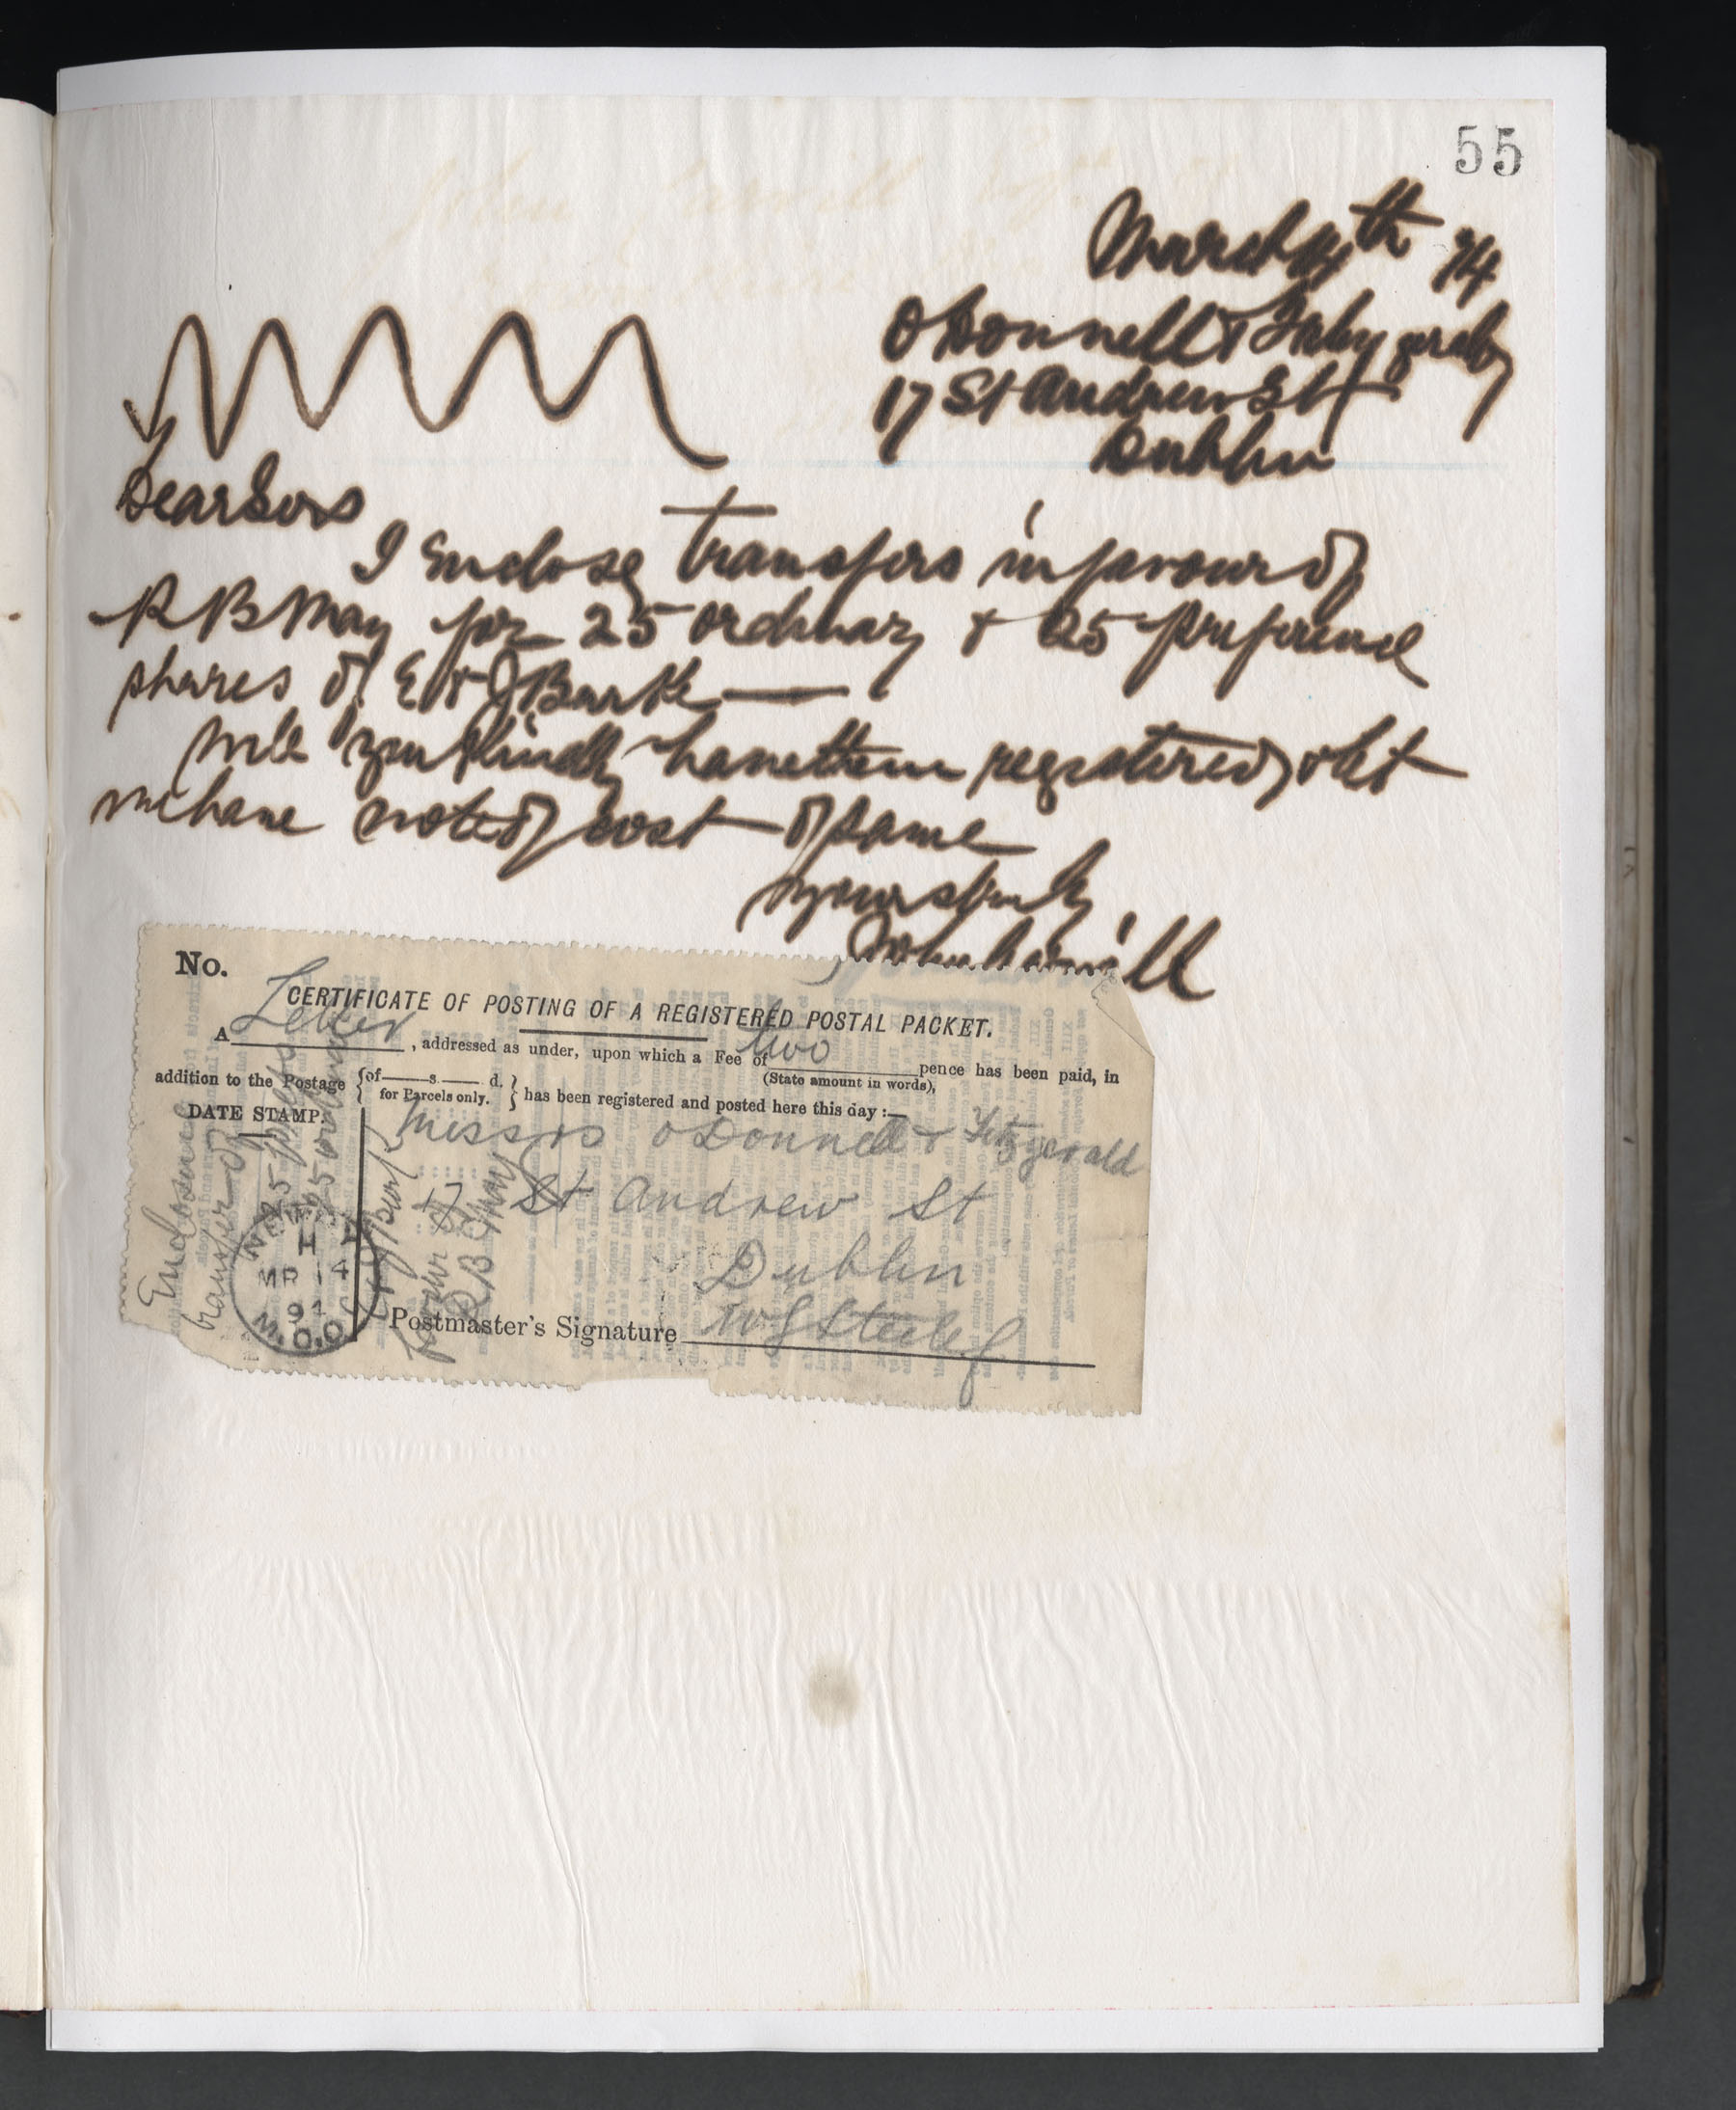 55
March 14th 94
O'Donnell & Fitzgerald
17 St Andrew St
Dublin
Dear Sirs
I Enclose transfers in favour of
R B May for 25 ordinary & 25 preference
shares of E & J Burke —
Will you kindly have them registered & let
me have note of cost of same
Yours truly
John Carvill
No.
CERTIFICATE OF POSTING OF A REGISTERED POSTAL PACKET.
A Letter, addressed as under, upon which a Fee of two pence has been paid, in
(State amount in words),
addition to the Postage {of — s. — d. for Parcels only.} has been registered and posted here this day:—
DATE STAMP.
Messrs O'Donnell & Fitzgerald
17 St Andrew St
Dublin
Postmaster's Signature W G Steele
Enclosures
transfer of
25
25 ordinary
favour of
R B May
NEWRY
H
MR 14
94
M.O.O.